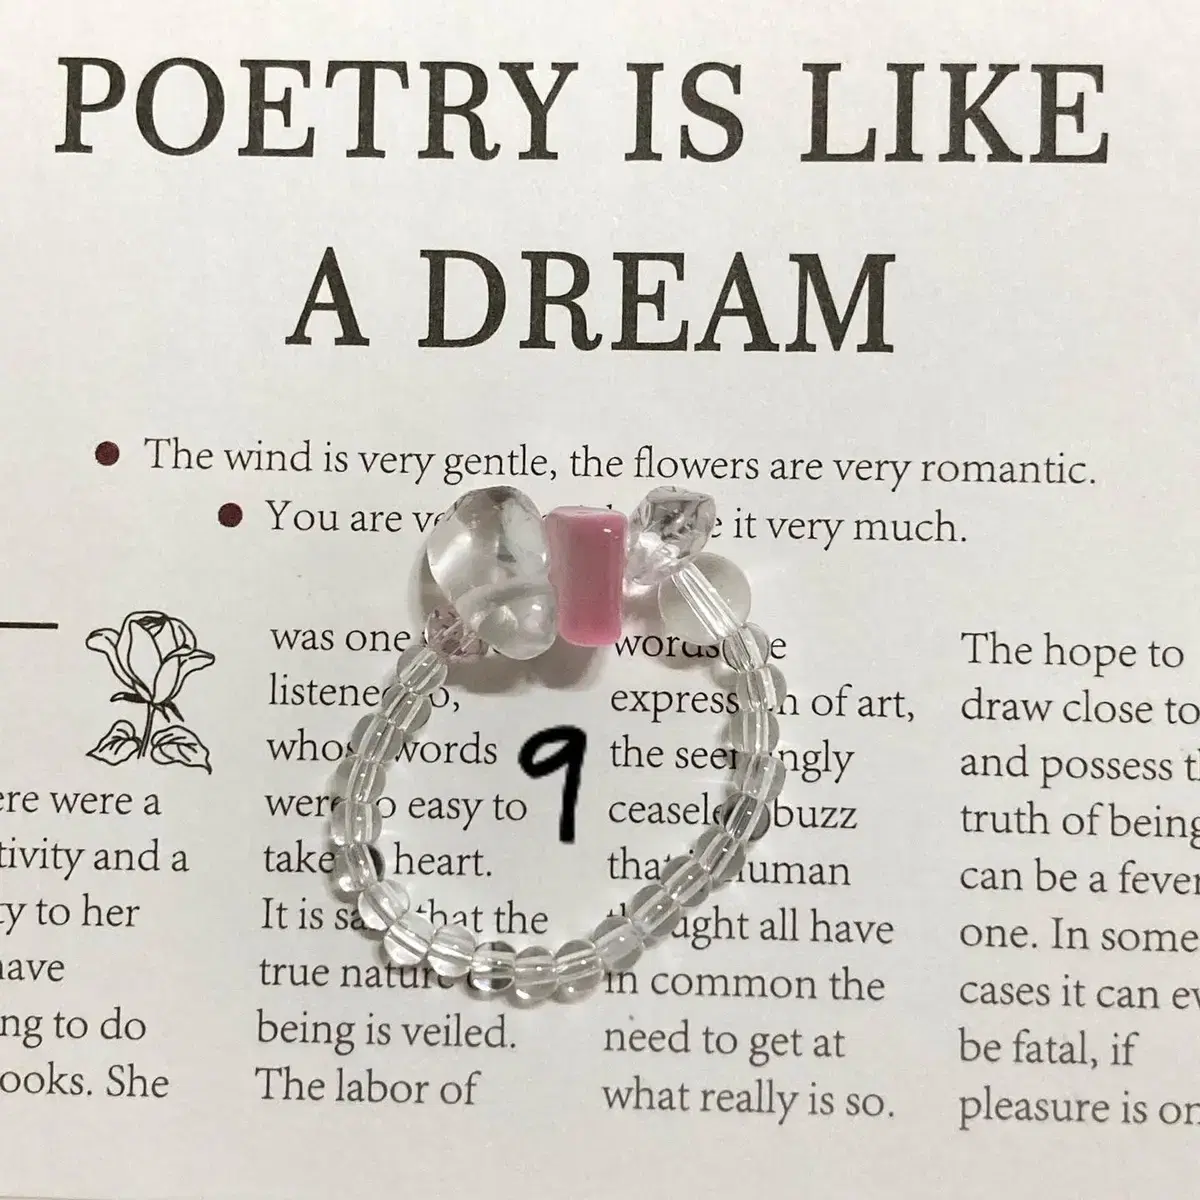 POETRY IS LIKE
A DREAM
The wind is very gentle, the flowers are very romantic.
You are it very much.
ere were a
tivity and a
ty to her
have
ng to do
ooks. She
was one
listened to,
whose words
were so easy to
take heart.
It is said that the
true nature of
being is veiled.
The labor of
9
words
expression of art,
the seemingly
ceaseless buzz
that is human
thought all have
in common the
need to get at
what really is so.
The hope to
draw close to
and possess th
truth of being
can be a fever
one. In some
cases it can ev
be fatal, if
pleasure is on